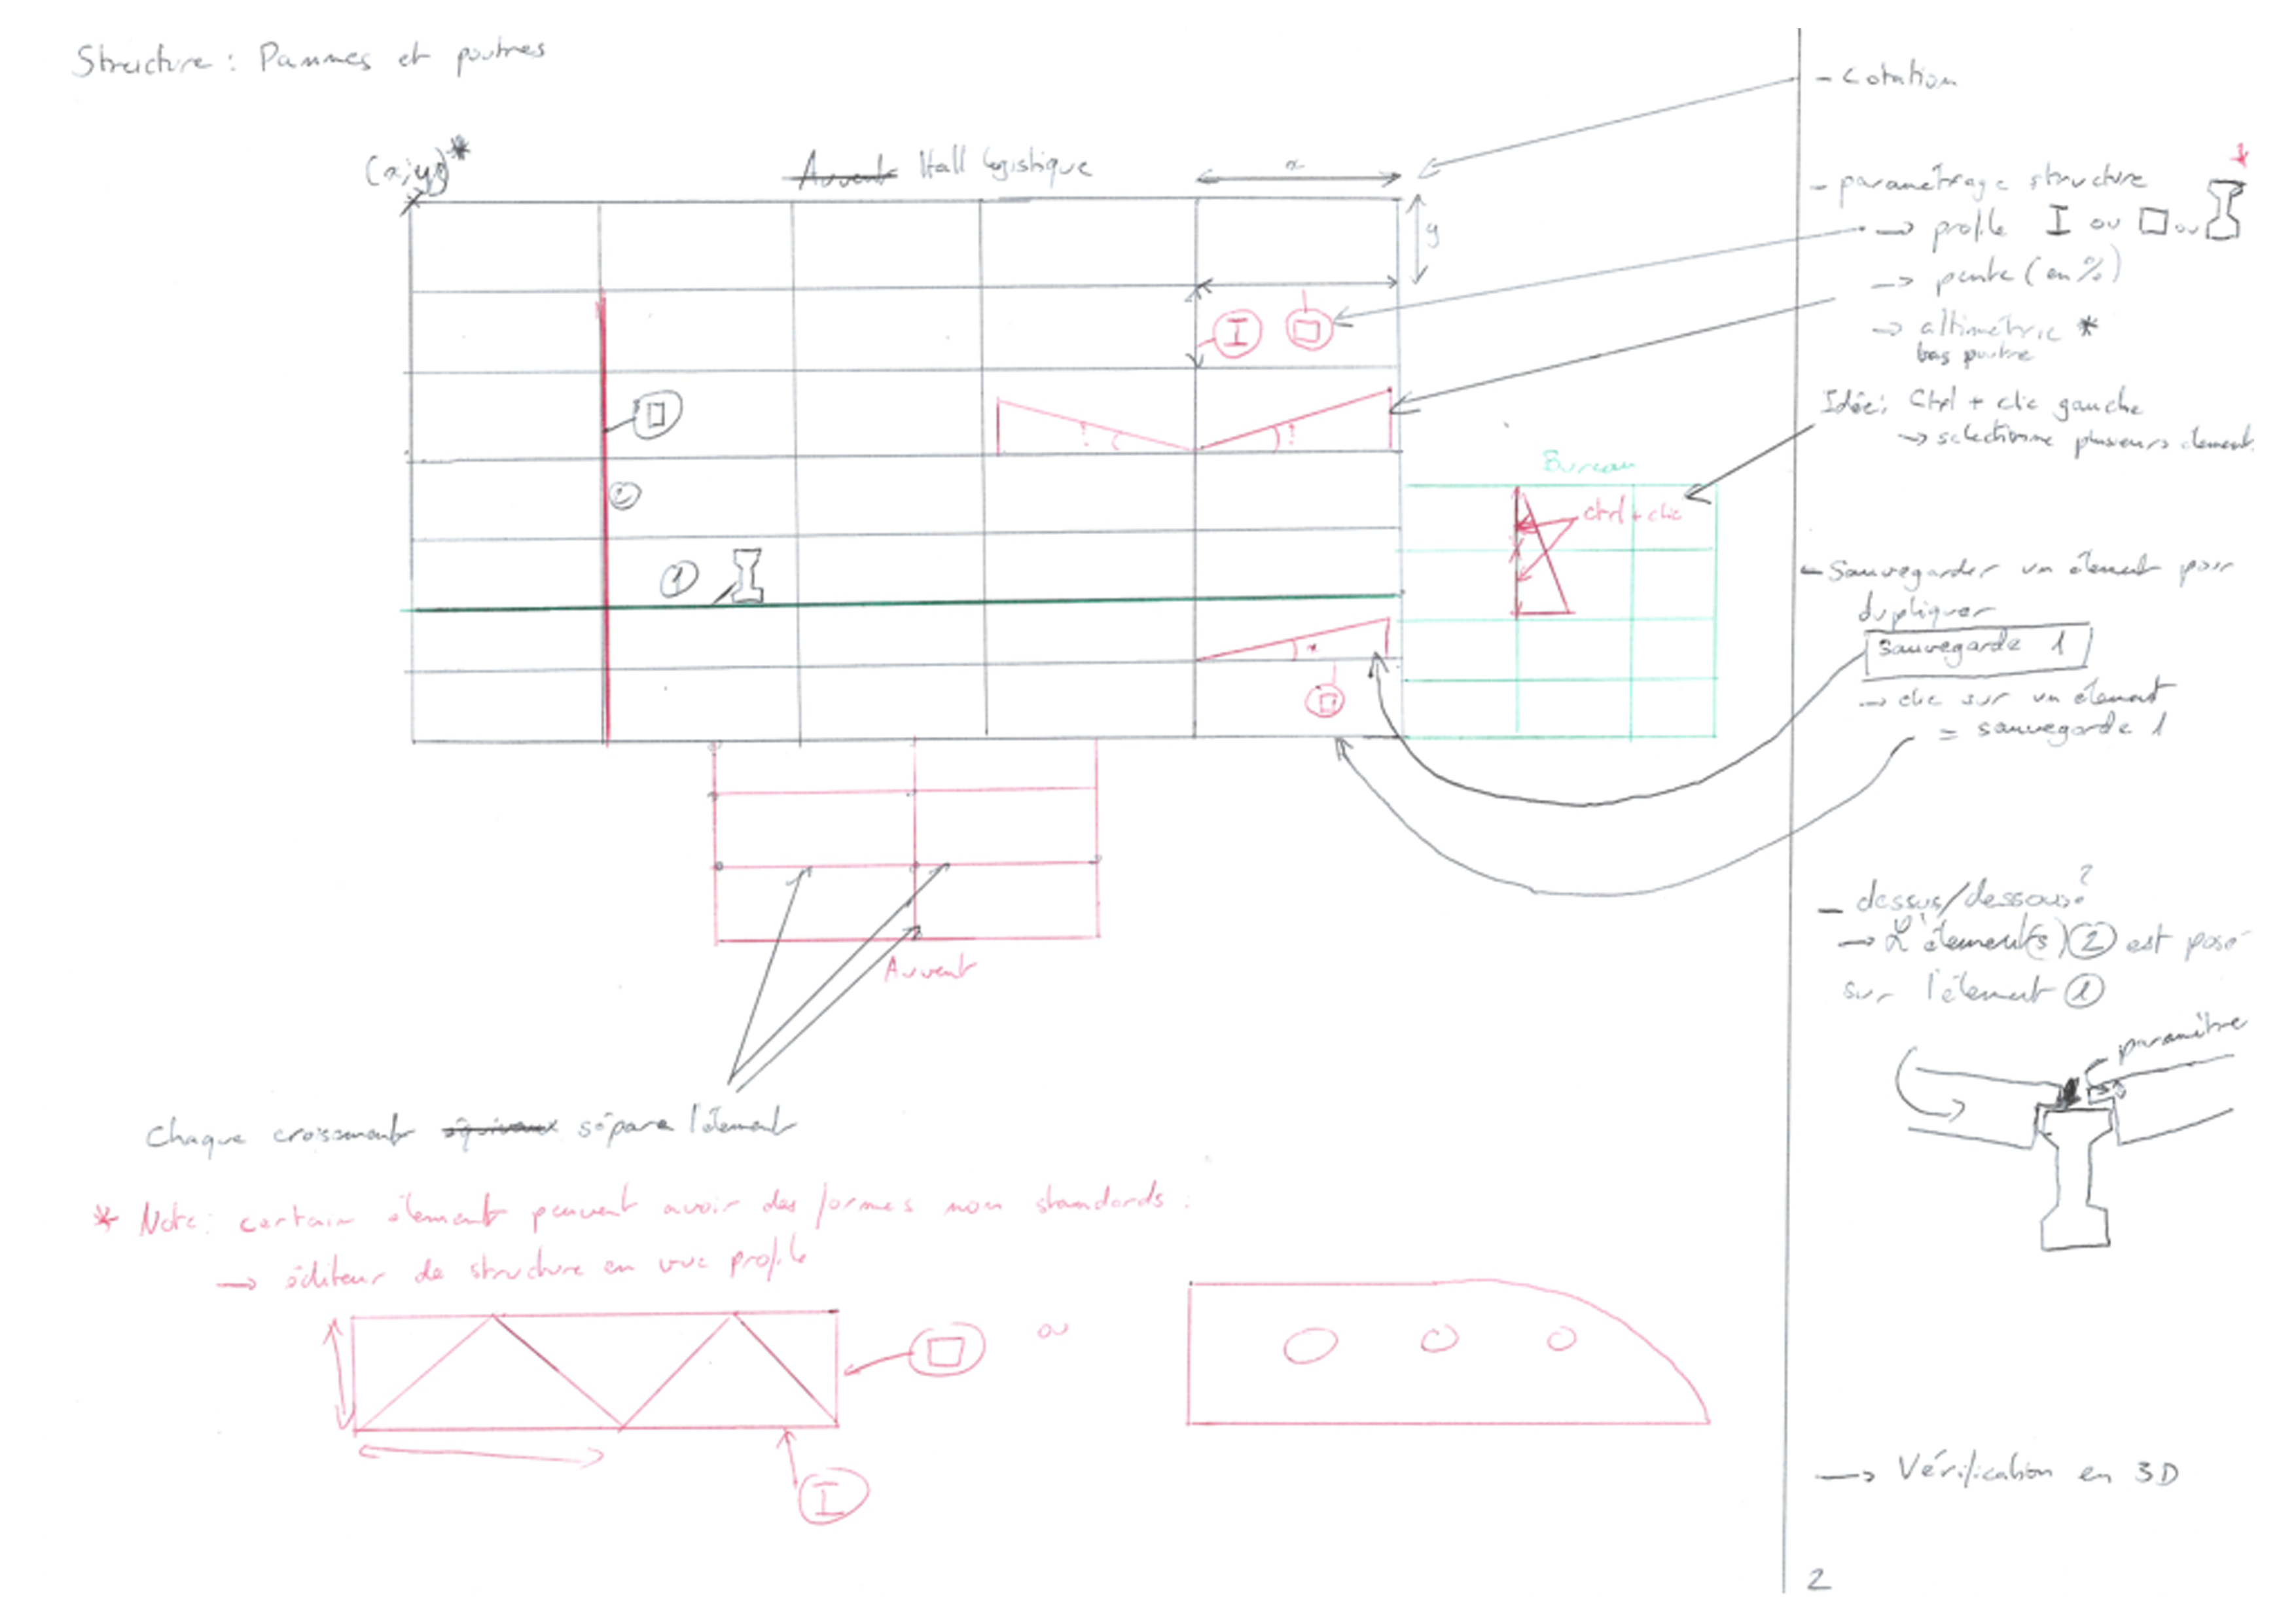 Structure : Pannes et poutres
(x;y;z)*
Auvent Hall logistique
x
y
I
2
1
Bureau
ctrl + clic
x
Auvent
Chaque croisement sépare l'élément
* Note : certain élément peuvent avoir des formes non standards :
→ éditeur de structure en vue profile
ou
I
- cotation
- paramétrage structure
→ profile I ou □ ou
→ pente (en %)
→ altimétrie *
bas poutre
Idée : Ctrl + clic gauche
→ selectionne plusieurs element
- Sauvegarder un élément pour
dupliquer
sauvegarde 1
→ clic sur un élément
= sauvegarde 1
- dessus/dessous ?
→ L'élément(s) 2 est posé
sur l'élément 1
paramètre
→ Vérification en 3D
2